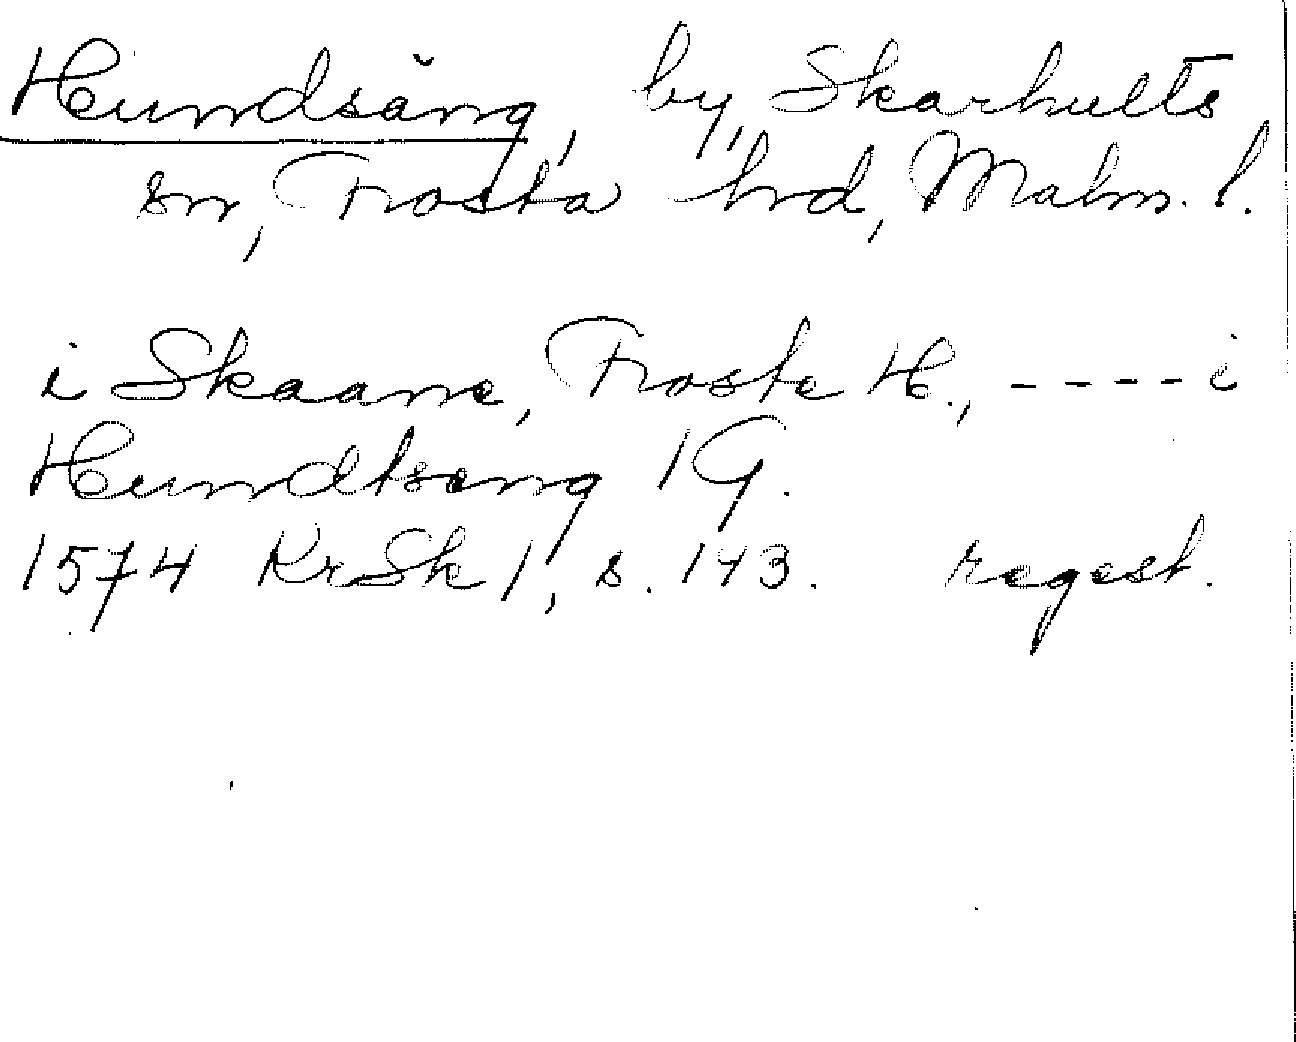 Hundsäng, by, Skarhults
sn, Frosta hrd, Malm. l.
i Skaane, Froste H., ---- i
Hundtseng 1 G.
1574 KrSk 1, s. 143. regest.